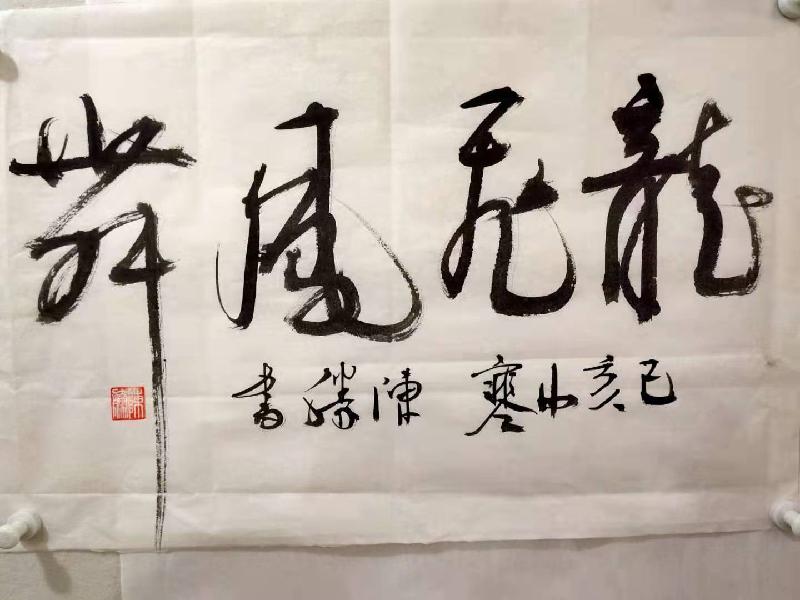 龍飛鳳舞
己亥小寒 陳勝書